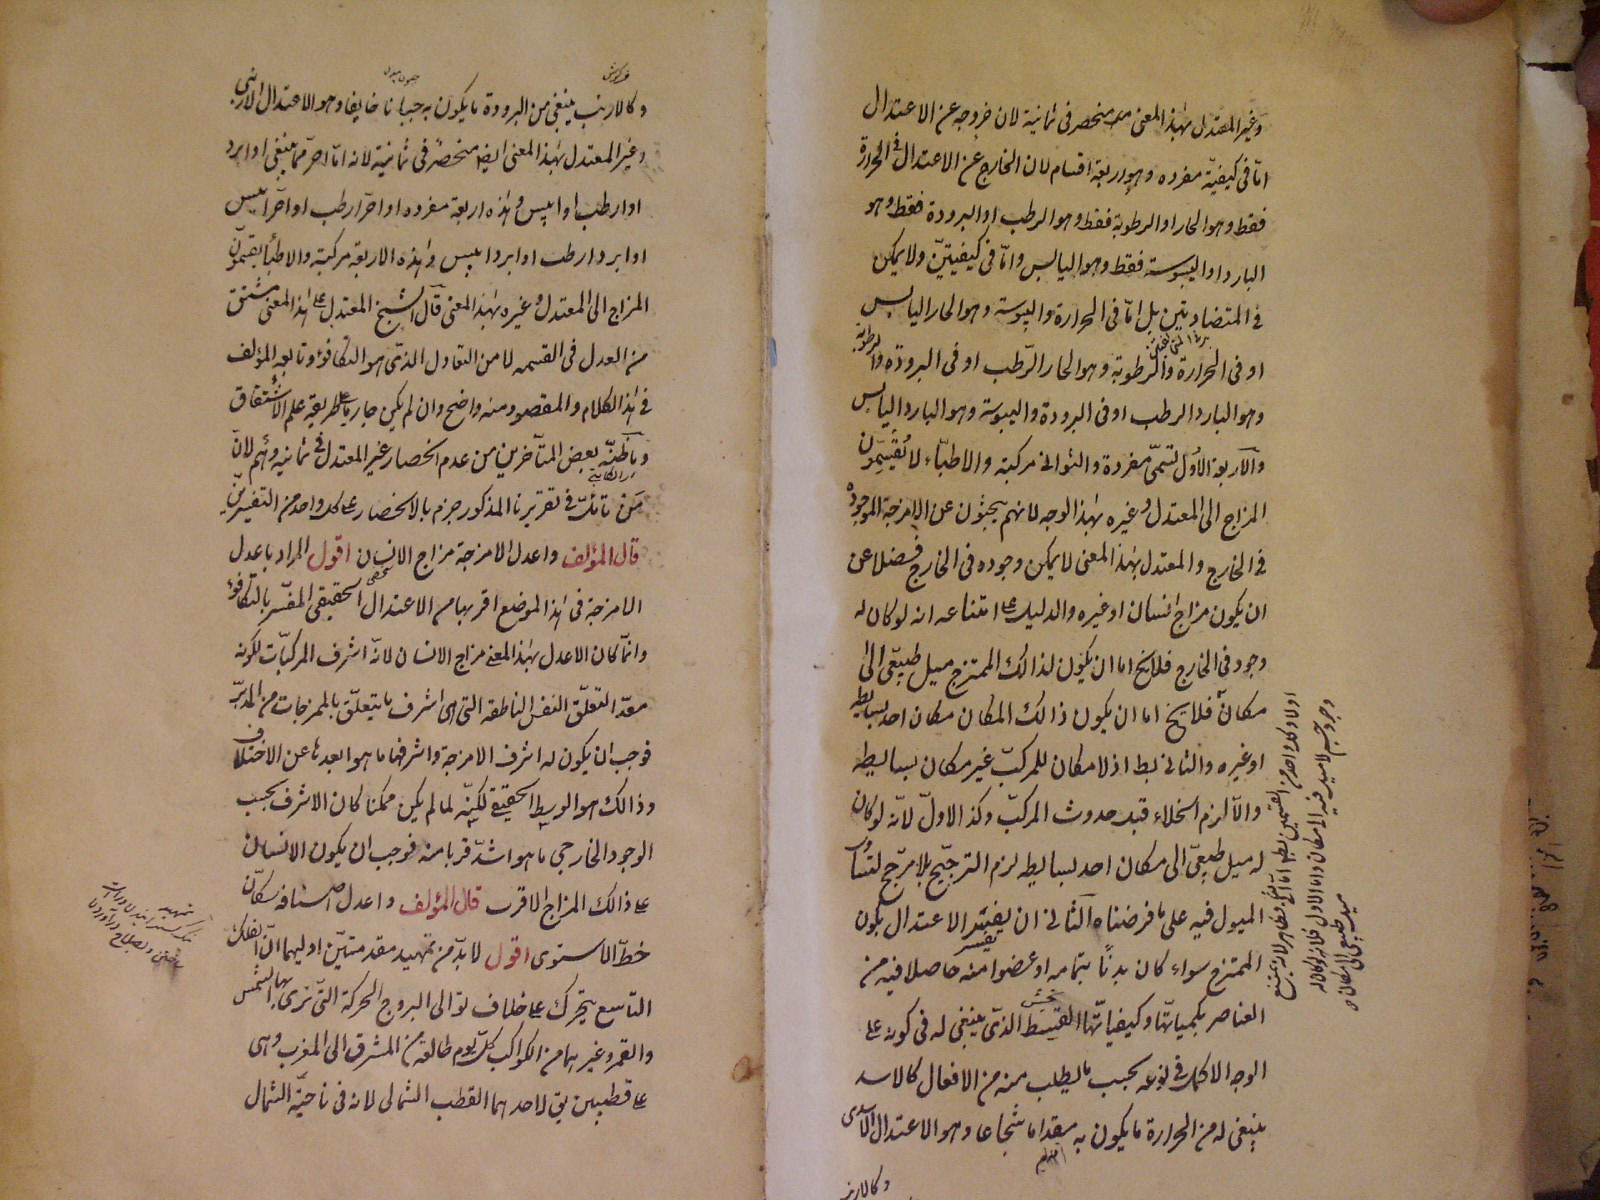 وغير المعتدل بهذا المعنى منحصر فى ثمانية لان خروجه عن الاعتدال
امّا فى كيفيّة مفرده وهو اربعة اقسام لان الخارج عن الاعتدال فى الحرارة
فقط وهو الحار او الرطوبة فقط وهو الرطب او البرودة فقط وهو
البارد او اليبوسته فقط وهو اليابس وامّا فى كيفيتيّن ولا يمكن
فى المتضادتين بل امّا فى الحرارة واليبوسته وهو الحار اليابس
او فى الحرارة والرطوبة وهو الحار الرّطب او فى البروده والرطوبة
وهو البارد الرطب او فى البرودة واليبوسته وهو البارد اليابس
والاربعة الاُول تسمّى مفردة والثوانى مركبته والاطبّاء لا يُقسّمون
المزاج الى المعتدل وغيره بهذا الوجه لانهم يبحثون عن الامزجة الموجوده
فى الخارج والمعتدل بهذا المعنى لا يمكن وجوده فى الخارج فضلا عن
ان يكون مزاج انسان او غيره والدليل على امتناعه انه لو كان له
وجود فى الخارج فلا يخ اما ان يكون لذالك الممتزج ميل طبيعّى الى
مكان فلا يخ اما ان يكون ذالك المكان مكان احد بسايطه
او غيره والثانى بط اذ لا مكان للمركبّ غير مكان بسايطه
والّا لزم الخلاء قبل حدوث المركبّ وكذا الاولّ لانّه لو كان
له ميل طبيعّى الى مكان احد بسايطه لزم الترجيّح بلا مرّجح لتساوى
الميول فيه على ما فرضناه الثانى ان يفسّر الاعتدال بكون
الممتزج سواء كان بدنًا بتمامه او عضوا منه حاصلا فيه من
العناصر بكمياتّها وكيفياتّها القسط الذى ينبغى له فى كونه على
الوجه الاكمل فى نوعه بحسب ما يطلب منه من الافعال كالاسد
ينبغى له من الحرارة ما يكون به مقداما شجاعا وهو الاعتدال الاسدى
وكالارنب
وكالارنب ينبغى من البرودة ما يكون به جبانا خايفا وهو الاعتدال الارنبى
وغير المعتدل بهذا المعنى ايضا منحصرٌ فى ثمانية لانه امّا احرّ ممّا ينبغى او ابرد
او ارطب او ايبس وهذه اربعة مفرده او احرّ ارطب او احرّ ايبس
او ابرد ارطب او ابرد ايبس وهذه الاربعة مركبّة والاطبّاء يقسّمون
المزاج الى المعتدل وغيره بهذا المعنى قال الشيخ المعتدل على هذا المعنى مشتق
من العدل فى القسمه لا من التعادل الذّى هو التكافوء وتابعه المؤلف
فى هذا الكلام والمقصود منه واضح وان لم يكن جاريا على طريقة علم الاشتقاق
وما ظنّه بعض المتأخرين من عدم انحصار غير المعتدل فى ثمانيه وهم لانّ
مَن تأمّل فى تقريرنا المذكور جزم بالانحصار على كل واحد من التفسيرين
قال المؤلف واعدل الامزجة مزاج الانسان اقول المراد باعدل
الامزجة فى هذا الموضع اقربها من الاعتدال الحقيقى المفسّر بالتكافوء
وانمّا كان الاعدل بهذا المعنى مزاج الانسان لانّه اشرف المركبّات لكونه
معدّا لتعلّق النفس الناطقه التى هى اشرف ما يتعلّق بالممزجات من المدبرّ
فوجب ان يكون له اشرف الامزجة واشرفها ما هو ابعدها عن الاختلاف
وذالك هو الوسط الحقيقى لكنّه لما لم يكن ممكنا كان الاشرف بحسب
الوجود الخارجى ما هو اشدّ قربا منه فوجب ان يكون الانسان
على ذالك المزاج الاقرب قال المؤلف واعدل اصنافه سكّان
خطّ الاستوى اقول لا بدّ من تمهيد مقدمتيّن اوليهما انّ الفلك
التاسع يتحرّك على خلاف توّالى البروج الحركة التّى نرى بها الشمس
والقمر وغيرهما من الكواكب كلّ يوم طالعة من المشرق الى المغرب وهى
على قطبين يق لاحدهما القطب الشمالى لانه فى ناحيّة الشمال